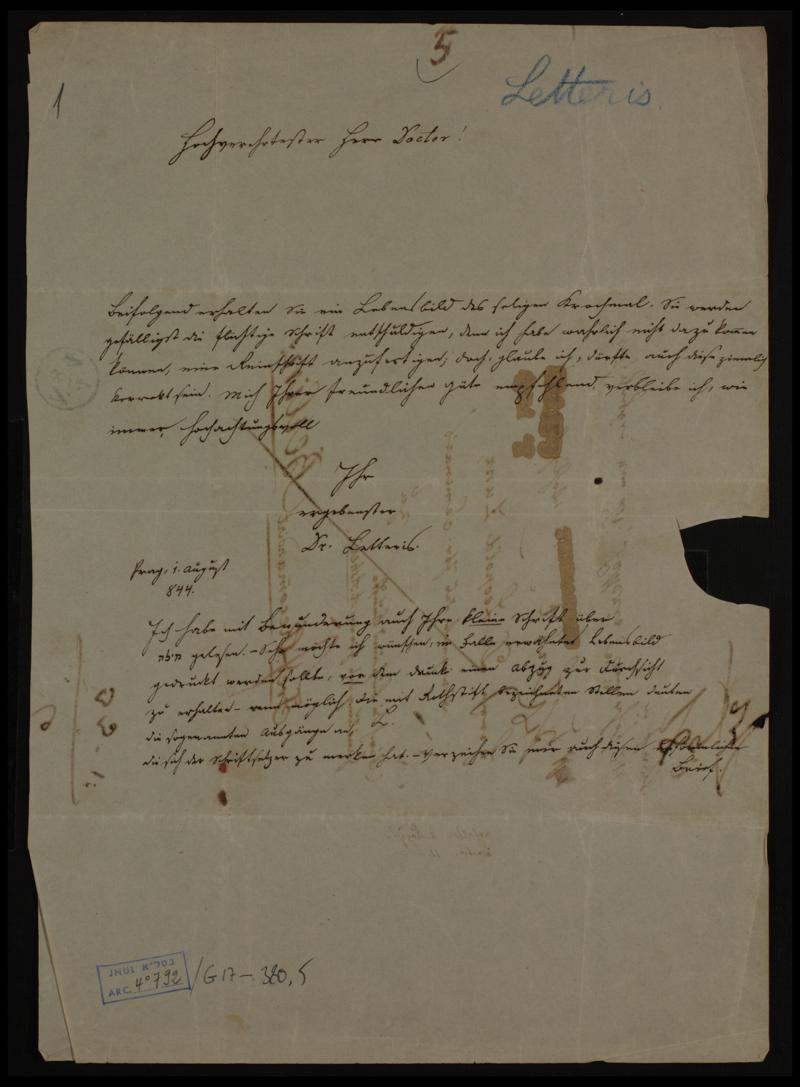 5
1
Letteris
Hochverehrtester Herr Doctor!
Beifolgend erhalten Sie ein Lebensbild des seligen Krochmal. Sie werden
gefälligst die flüchtige Schrift entschuldigen, denn ich habe wahrlich nicht dazu kommen
können, eine Reinschrift anzufertigen; doch, glaube ich, dürfte auch diese ziemlich
korrekt sein. Mich Ihrer freundlichen Güte empfehlend verbleibe ich, wie
immer, hochachtungsvoll
Ihr
ergebenster
Dr. Letteris.
Prag, 1. August
844.
Ich habe mit Bewunderung auch Ihre kleine Schrift über
gelesen. – Sehr möchte ich wünschen, im Falle erwähntes Lebensbild
gedruckt werden sollte, vor dem Druck einen Abzug zur Durchsicht
zu erhalten – wenn möglich. Die mit Rothstift bezeichneten Stellen deuten
die sogenannten Ausgänge an, L.
die sich der Schriftsetzer zu merken hat. – Verzeihen Sie mir auch diesen
Brief.
JNUL
ARC. 4° 792 / G 17 – 380, 5